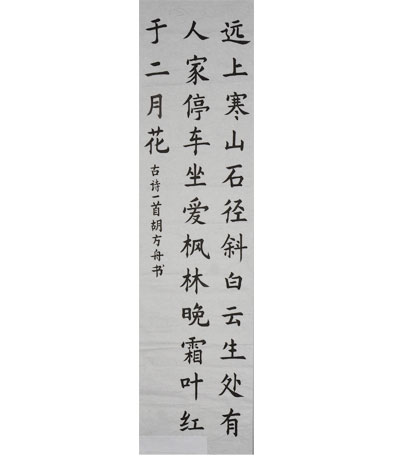 远上寒山石径斜白云生处有
人家停车坐爱枫林晚霜叶红
于二月花
古诗一首胡方舟书